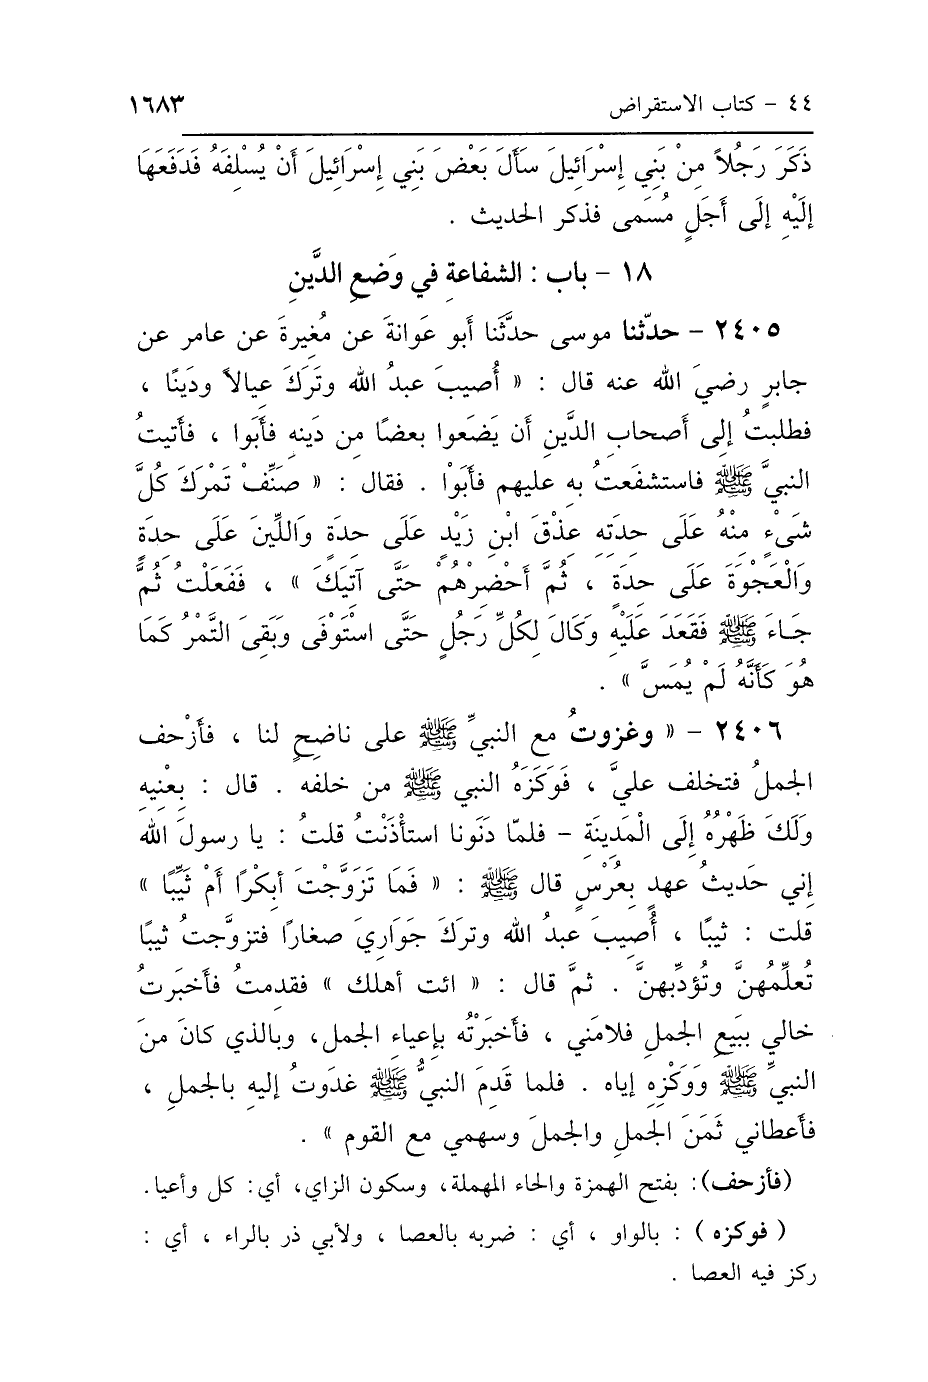 ٤٤ - كتاب الاستقراض ١٦٨٣
ذَكَرَ رَجُلاً مِنْ بَنِي إِسْرَائِيلَ سَأَلَ بَعْضَ بَنِي إِسْرَائِيلَ أَنْ يُسْلِفَهُ فَدَفَعَهَا
إِلَيْهِ إِلَى أَجَلٍ مُسَمى فذكر الحديث .
١٨ - باب : الشفاعةِ في وَضعِ الدَّينِ
٢٤٠٥ - حدّثنا موسى حدَّثَنا أبو عَوانةَ عن مُغيرةَ عن عامر عن
جابرٍ رضيَ الله عنه قال : « أُصيبَ عبدُ الله وتَرَكَ عيالاً ودَينًا ،
فطلبتُ إلى أصحاب الدَّينِ أن يَضَعوا بعضًا من دَينهِ فأَبَوا ، فأتيتُ
النبيَّ ﷺ فاستشفَعتُ به عليهم فأبَوْا . فقال : « صَنِّفْ تَمْرَكَ كُلَّ
شَىْءٍ مِنْهُ عَلَى حِدَتِهِ عِذْقَ ابْنِ زَيْدٍ عَلَى حِدَةٍ وَاللِّينَ عَلَى حِدَةٍ
وَالْعَجْوَةَ عَلَى حِدَةٍ ، ثُمَّ أَحْضِرْهُمْ حَتَّى آتِيَكَ » ، فَفَعَلْتُ ثُمَّ
جَاءَ ﷺ فَقَعَدَ عَلَيْهِ وَكَالَ لِكُلِّ رَجُلٍ حَتَّى اسْتَوْفَى وَبَقِىَ التَّمْرُ كَمَا
هُوَ كَأَنَّهُ لَمْ يُمَسَّ » .
٢٤٠٦ - « وغزوتُ مع النبيِّ ﷺ على ناضِحٍ لنا ، فأَزْحف
الجملُ فتخلف عليَّ ، فَوَكَزَهُ النبي ﷺ من خلفه . قال : بِعْنِيهِ
وَلَكَ ظَهْرُهُ إِلَى الْمَدِينَةِ - فلمّا دَنَونا استأْذَنْتُ قلتُ : يا رسولَ الله
إني حَديثُ عهدٍ بِعُرْسٍ قال ﷺ : « فَمَا تَزَوَّجْتَ أَبِكْرًا أَمْ ثَيِّبًا »
قلت : ثيبًا ، أُصيبَ عبدُ الله وتركَ جَوَارِيَ صغارًا فتزوَّجتُ ثيبًا
تُعلِّمُهنَّ وتُؤدِّبهنَّ . ثمَّ قال : « ائت أهلك » فقدمتُ فأخبَرتُ
خالي ببَيعِ الجملِ فلامَني ، فأخبَرْتُه بإعياءِ الجمل، وبالذي كانَ منَ
النبيِّ ﷺ ووَكْزِهِ إياه . فلما قَدِمَ النبيُّ ﷺ غدَوتُ إليهِ بالجملِ ،
فأعطاني ثَمَنَ الجملِ والجملَ وسهمي مع القوم » .
(فأزحف): بفتح الهمزة والحاء المهملة، وسكون الزاي، أي: كل وأعيا.
( فوكزه ) : بالواو ، أي : ضربه بالعصا ، ولأبي ذر بالراء ، أي :
ركز فيه العصا .